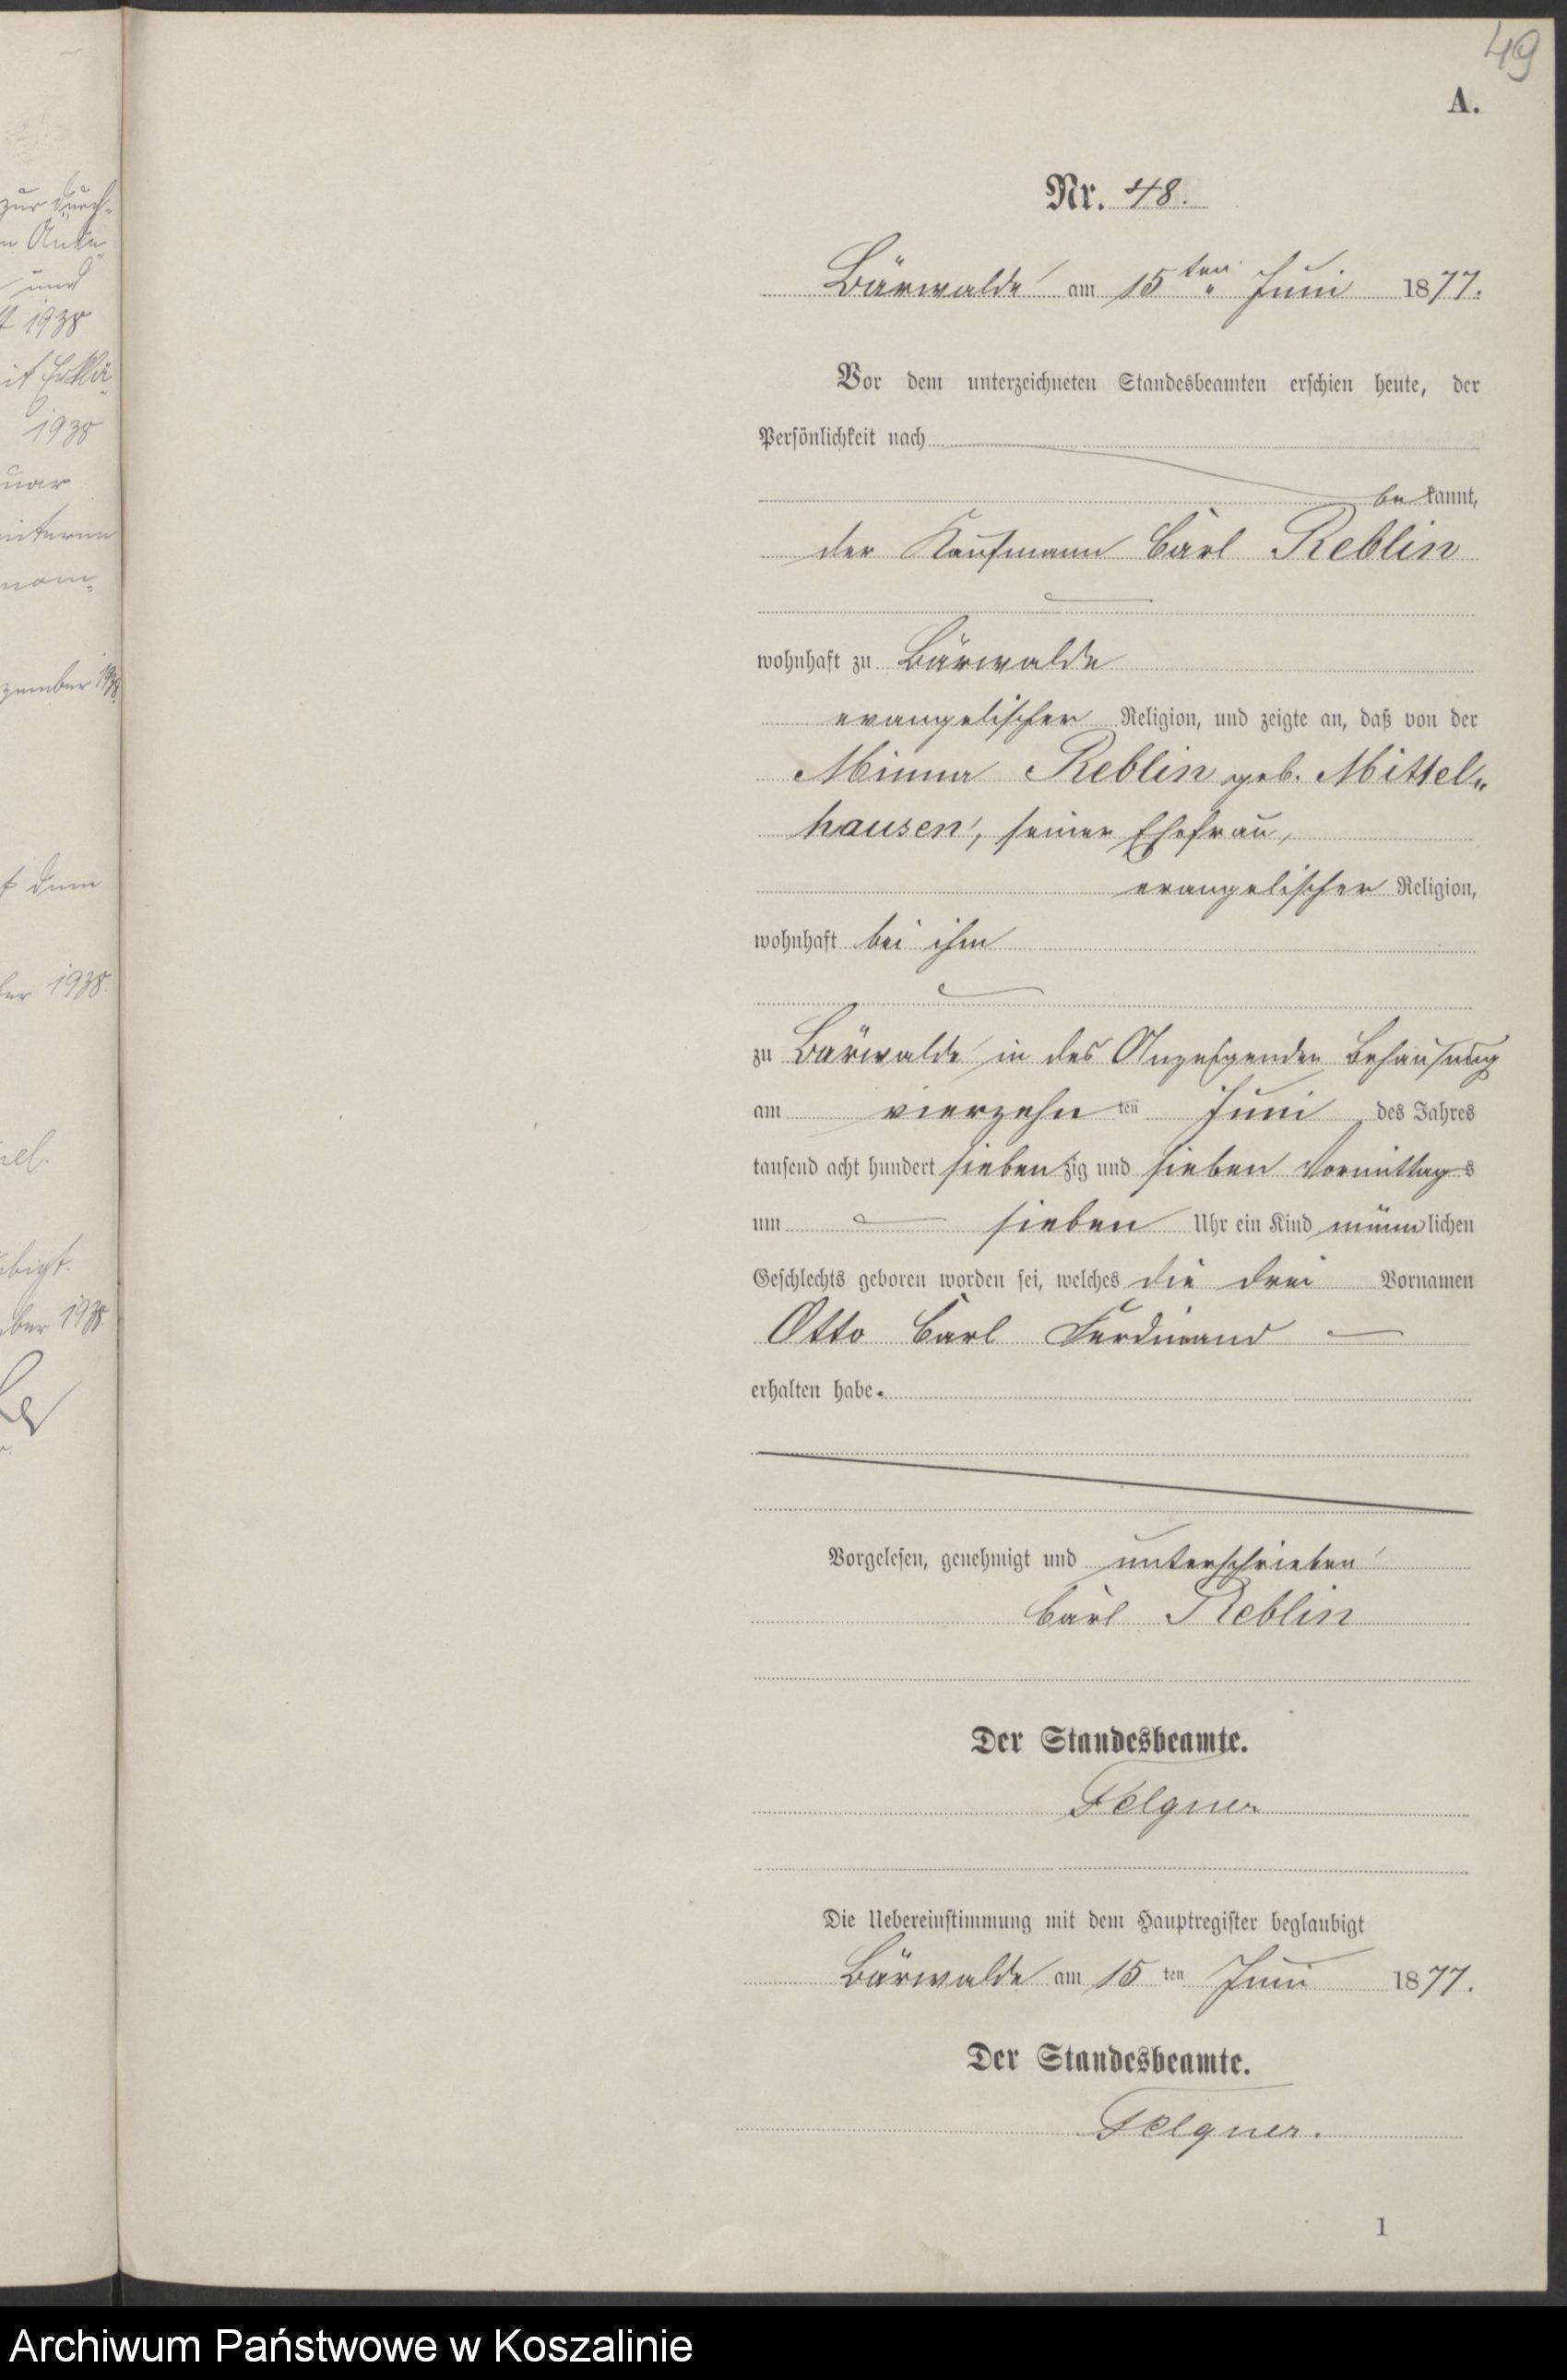 zur Durch-
und
1938
1938
zember 1938
dem
1938.
1938.
49
A.
Nr. 48.
Bärwalde am 15ten Juni 1877.
Vor dem unterzeichneten Standesbeamten erschien heute, der
Persönlichkeit nach
bekannt,
der Kaufmann Carl Reblin
wohnhaft zu Bärwalde
evangelischer Religion, und zeigte an, daß von der
Minna Reblin geb. Mittel„
hausen, seiner Ehefrau,
evangelischer Religion,
wohnhaft bei ihm
zu Bärwalde in des Anzeigenden Behausung
am vierzehn ten Juni des Jahres
tausend acht hundert siebenzig und sieben Vormittags
um sieben Uhr ein Kind männlichen
Geschlechts geboren worden sei, welches die drei Vornamen
Otto Carl Ferdinand
erhalten habe.
Vorgelesen, genehmigt und unterschrieben
Carl Reblin
Der Standesbeamte.
Felgner
Die Uebereinstimmung mit dem Hauptregister beglaubigt
Bärwalde am 15 ten Juni 1877.
Der Standesbeamte.
Felgner.
1
Archiwum Państwowe w Koszalinie